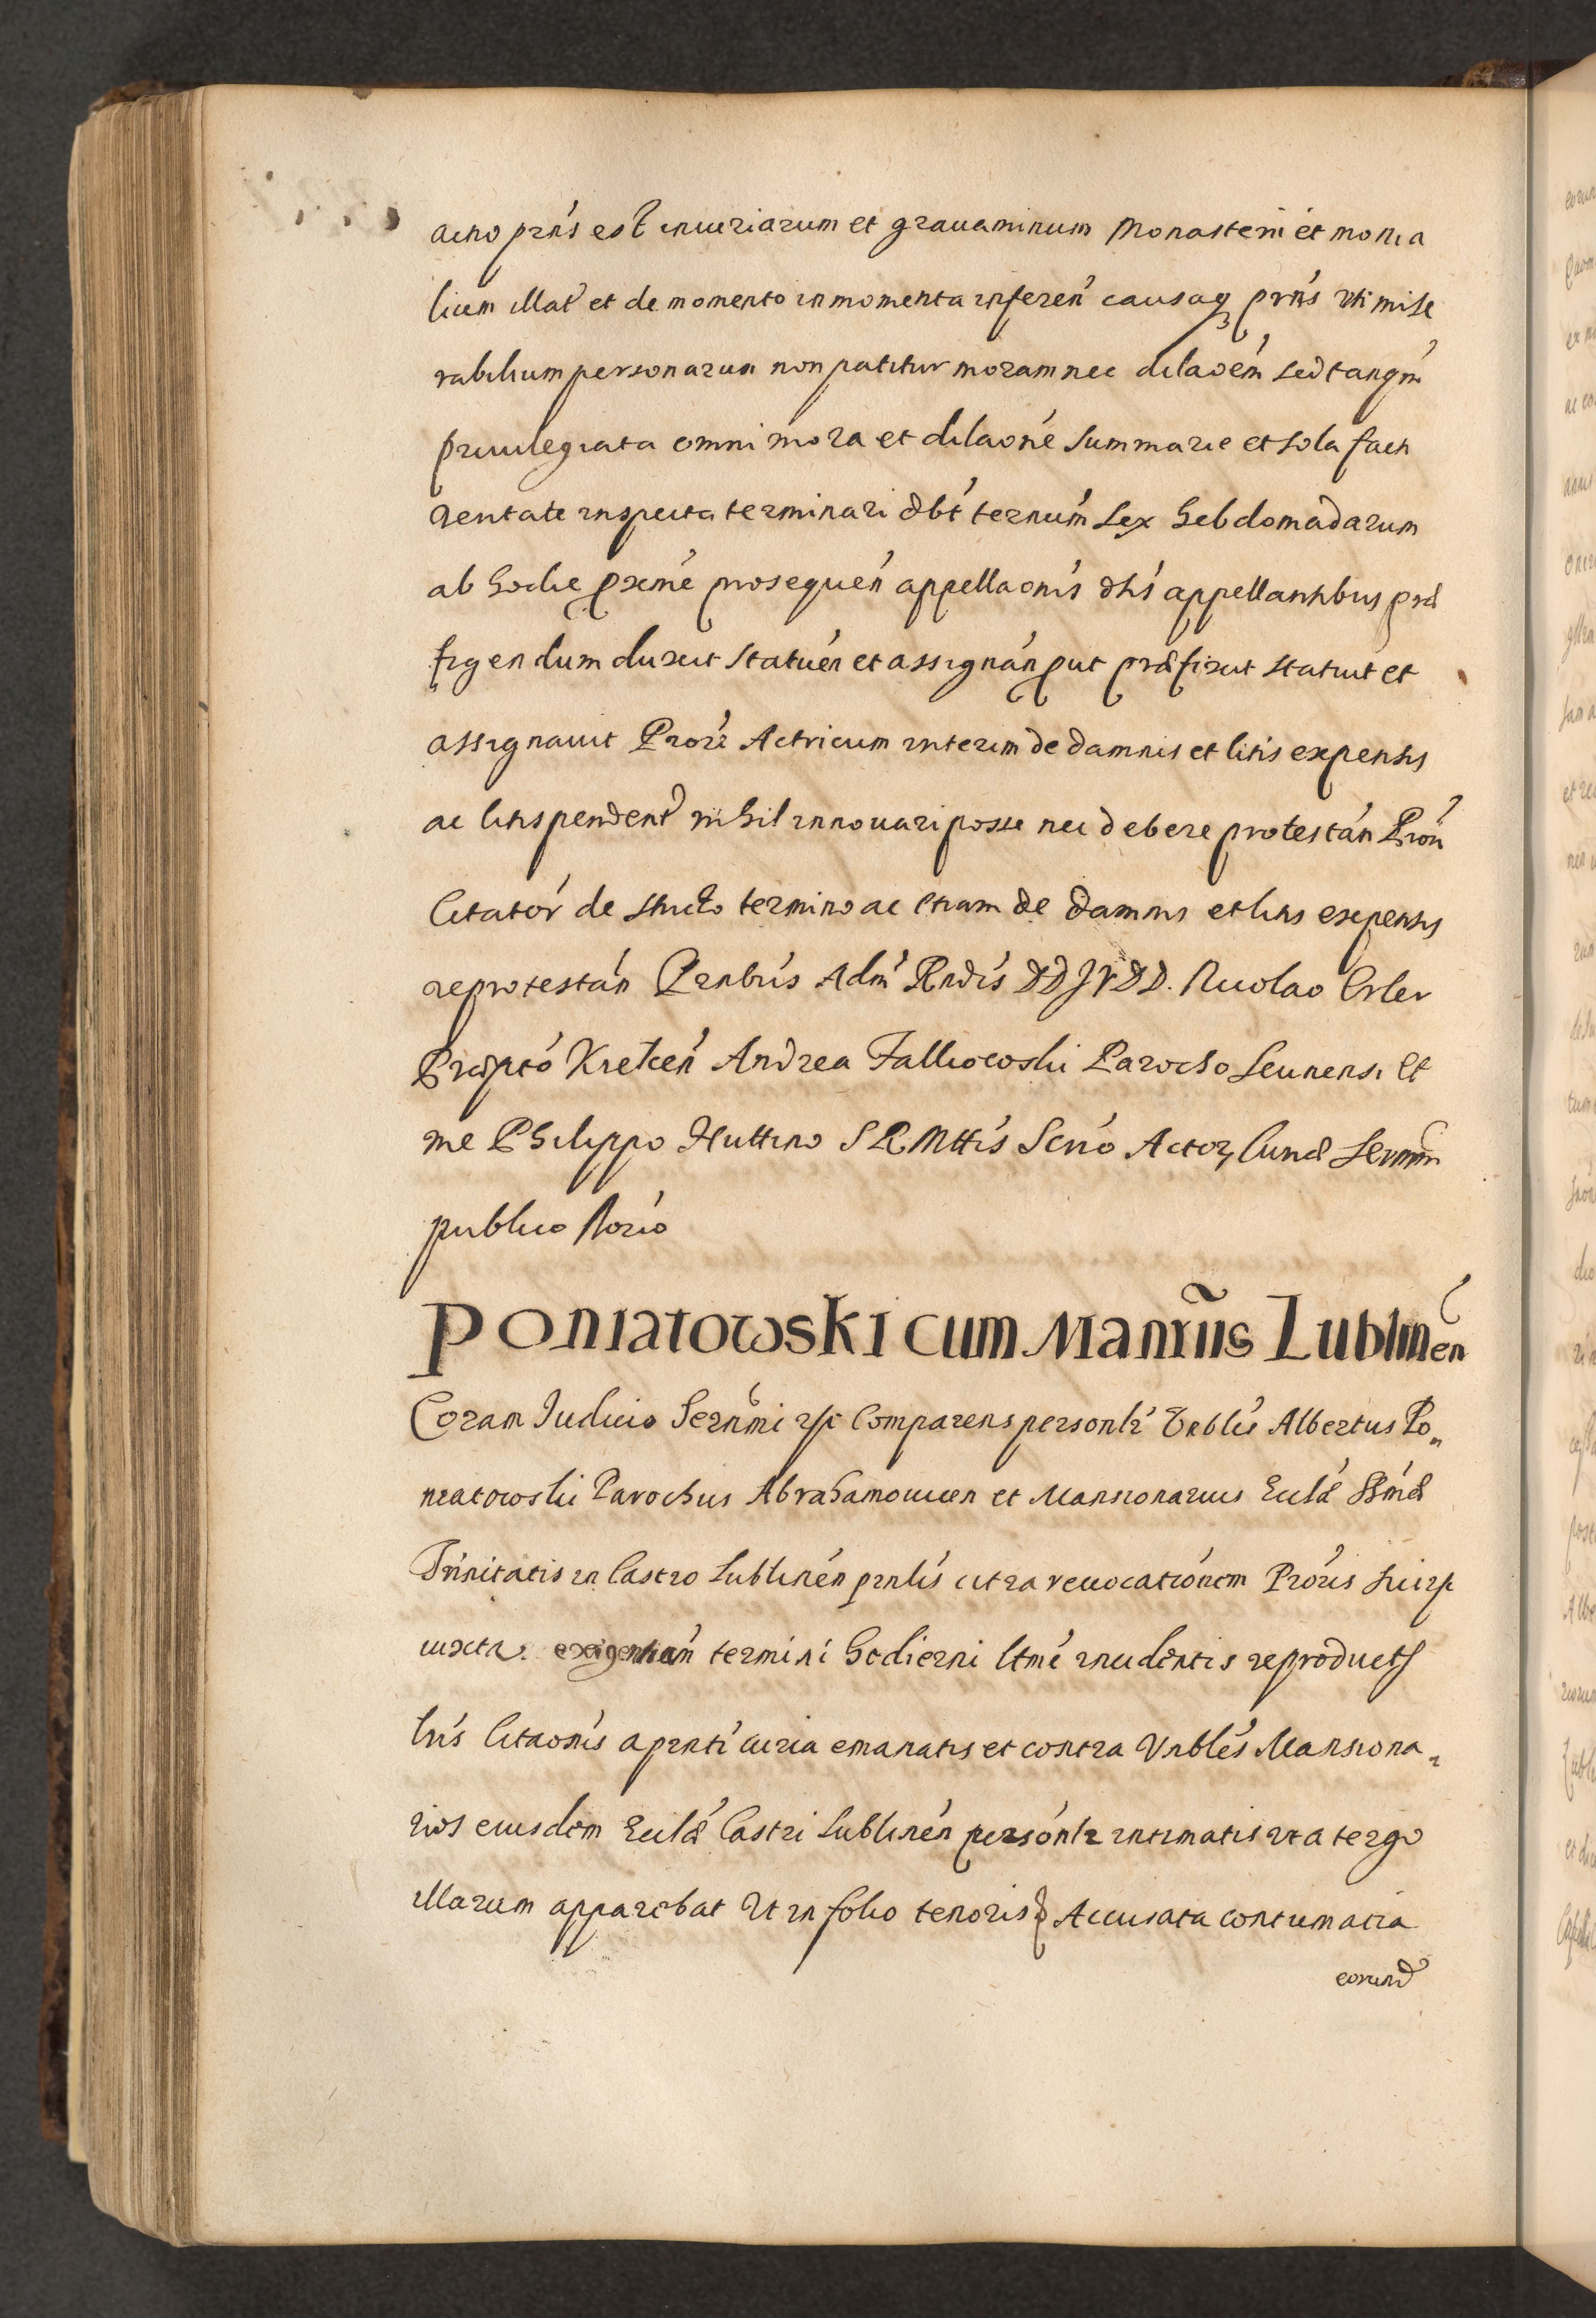 actio prńs est iniuriarum et grauaminum Monasterii et monia
lium illat̕ et de momento in momenta inferen̕ causaq prńs vti mise
rabilium personarum non patitur moram nec dilaoem̕ sed tanqm̕
priuilegiata omni mora et dilaone̕ summarie et sola facti
veritate inspecta terminari dbt̕ ternum̕ sex hebdomadarum
ab hodie pxime̕ prosequen̕ appellaonis̕ dtis̕ appellantibus præ
figendum duxit statuen̕ et assignan̕ put præfixit statuit et
assignauit Prori̕ Actricum interim de damnis et litis expensis
ac litispendent̕ nihil innouari posse nec debere protestan̕ Prori̕
Citator̕ de stricto termino ac etiam de damnis et litis expensis
reprotestan̕ Prnbus̕ Adm̕ Rndis̕ DD JVDD. Nicolao Erler
Præpto̕ Krełcen̕ Andrea Falkowski Parocho Leunensi Et
me Philippo Huttino S R Mttis̕ Scrio̕ Actor, Curiæ Sernm̕
publico Norio̕
Poniatowski cum Manrĩis Lublinen̕
Coram Iudicio Sernmi̕ rsp Comparens personlr̕ Vnblis̕ Albertus Po„
niatowski Parochus Abrahamouicen et Mansionarius Eccla̕e SSmæ̕
Trinitatis in Castro Lublinen̕ prnlis̕ citra reuocationem̕ Proris̕ sui rsp
iuxta exigentiam̕ termini hodierni ltme̕ incidentis reproductis
lris̕ Citaonis̕ a prnti̕ curia emanatis et contra Vnbles̕ Mansiona„
rios eiusdem Ecclæ̕ Castri Lublinen̕ personlr̕ intimatis vt a tergo
illarum apparebat Vt in folio tenoris Accusata contumacia
eorund̕